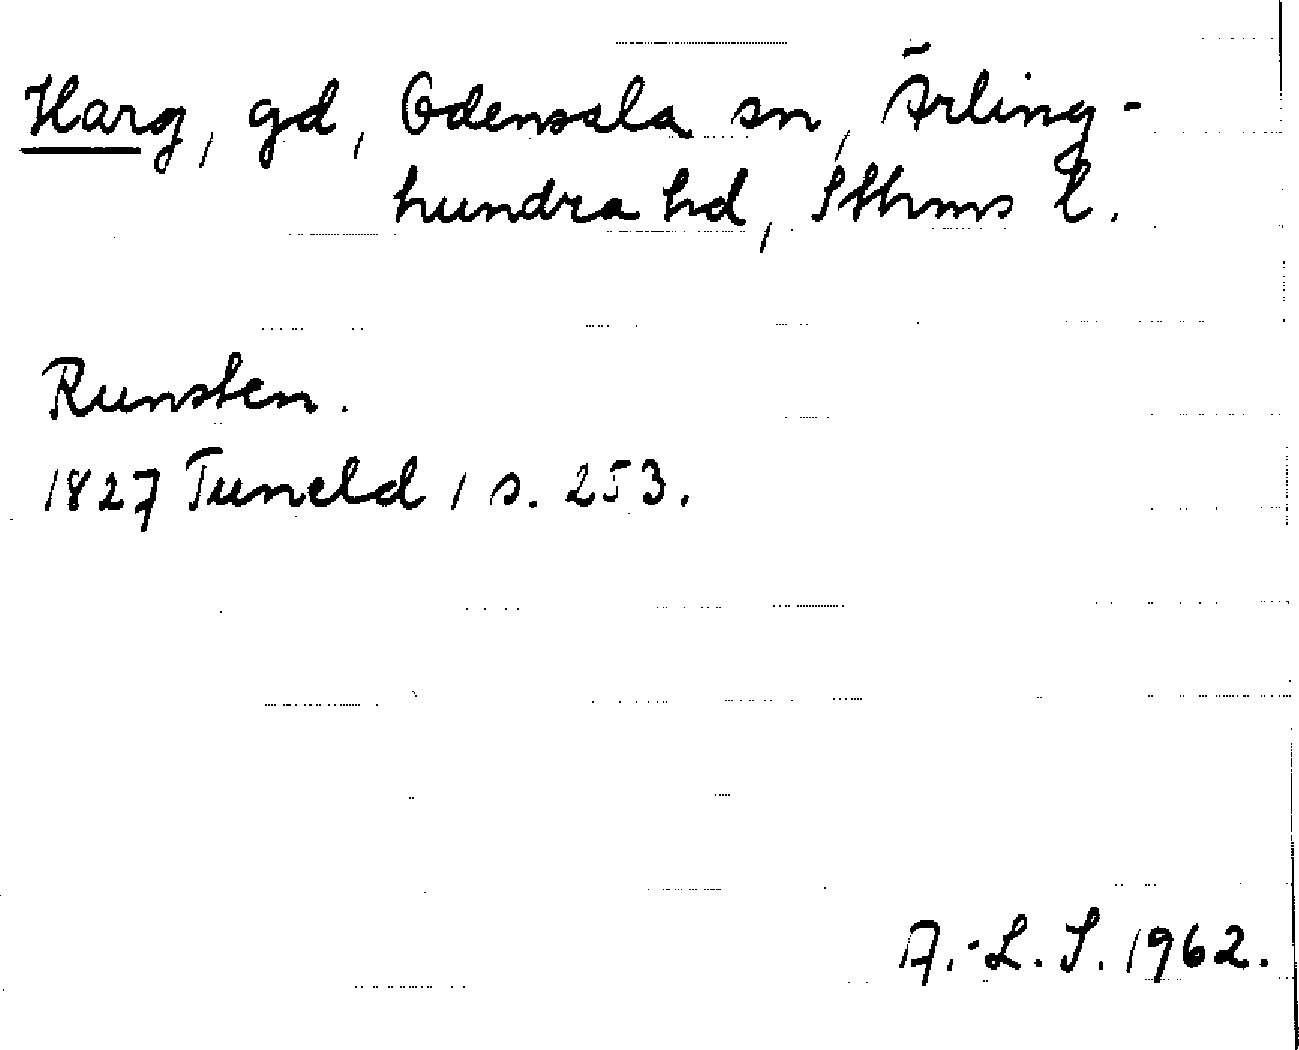 Harg, gd, Odensala sn, Ärling-
hundra hd, Sthms l.
Runsten.
1827 Tuneld 1 s. 253.
A.-L. S. 1962.